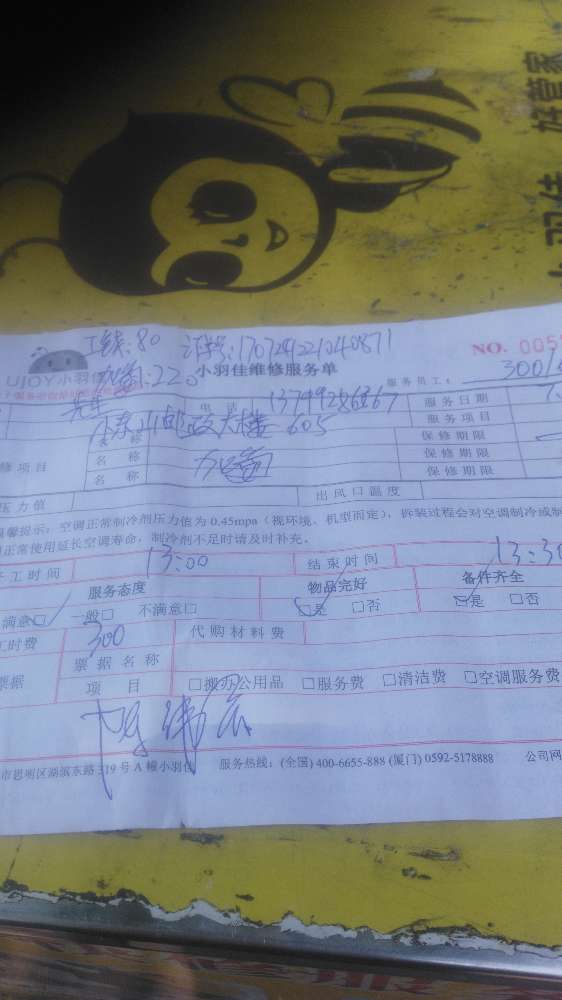 好管家
小羽佳
工钱:80 订单号:170729221040871
NO. 005
UJOY小羽佳
加氟:220
小羽佳维修服务单
服务员工:
先生
电 话
13799286867
服务日期
邮政大楼 605
服务项目
名 称
保修期限
修项目
名 称
加氟
保修期限
名 称
保修期限
压力值
出风口温度
馨提示:空调正常制冷剂压力值为 0.45mpa(视环境、机型而定),拆装过程会对空调制冷或制
正常使用延长空调寿命,制冷剂不足时请及时补充。
工时间
13:00
结束时间
13:30
服务态度
物品完好
备件齐全
满意□ 一般□ 不满意□
□是 □否
□是 □否
工时费
300
代购材料费
票据
票据名称
项 目
□搬办公用品 □服务费 □清洁费 □空调服务费
市思明区湖滨东路 319 号 A 幢小羽佳
服务热线:(全国) 400-6655-888 (厦门) 0592-5178888
公司网